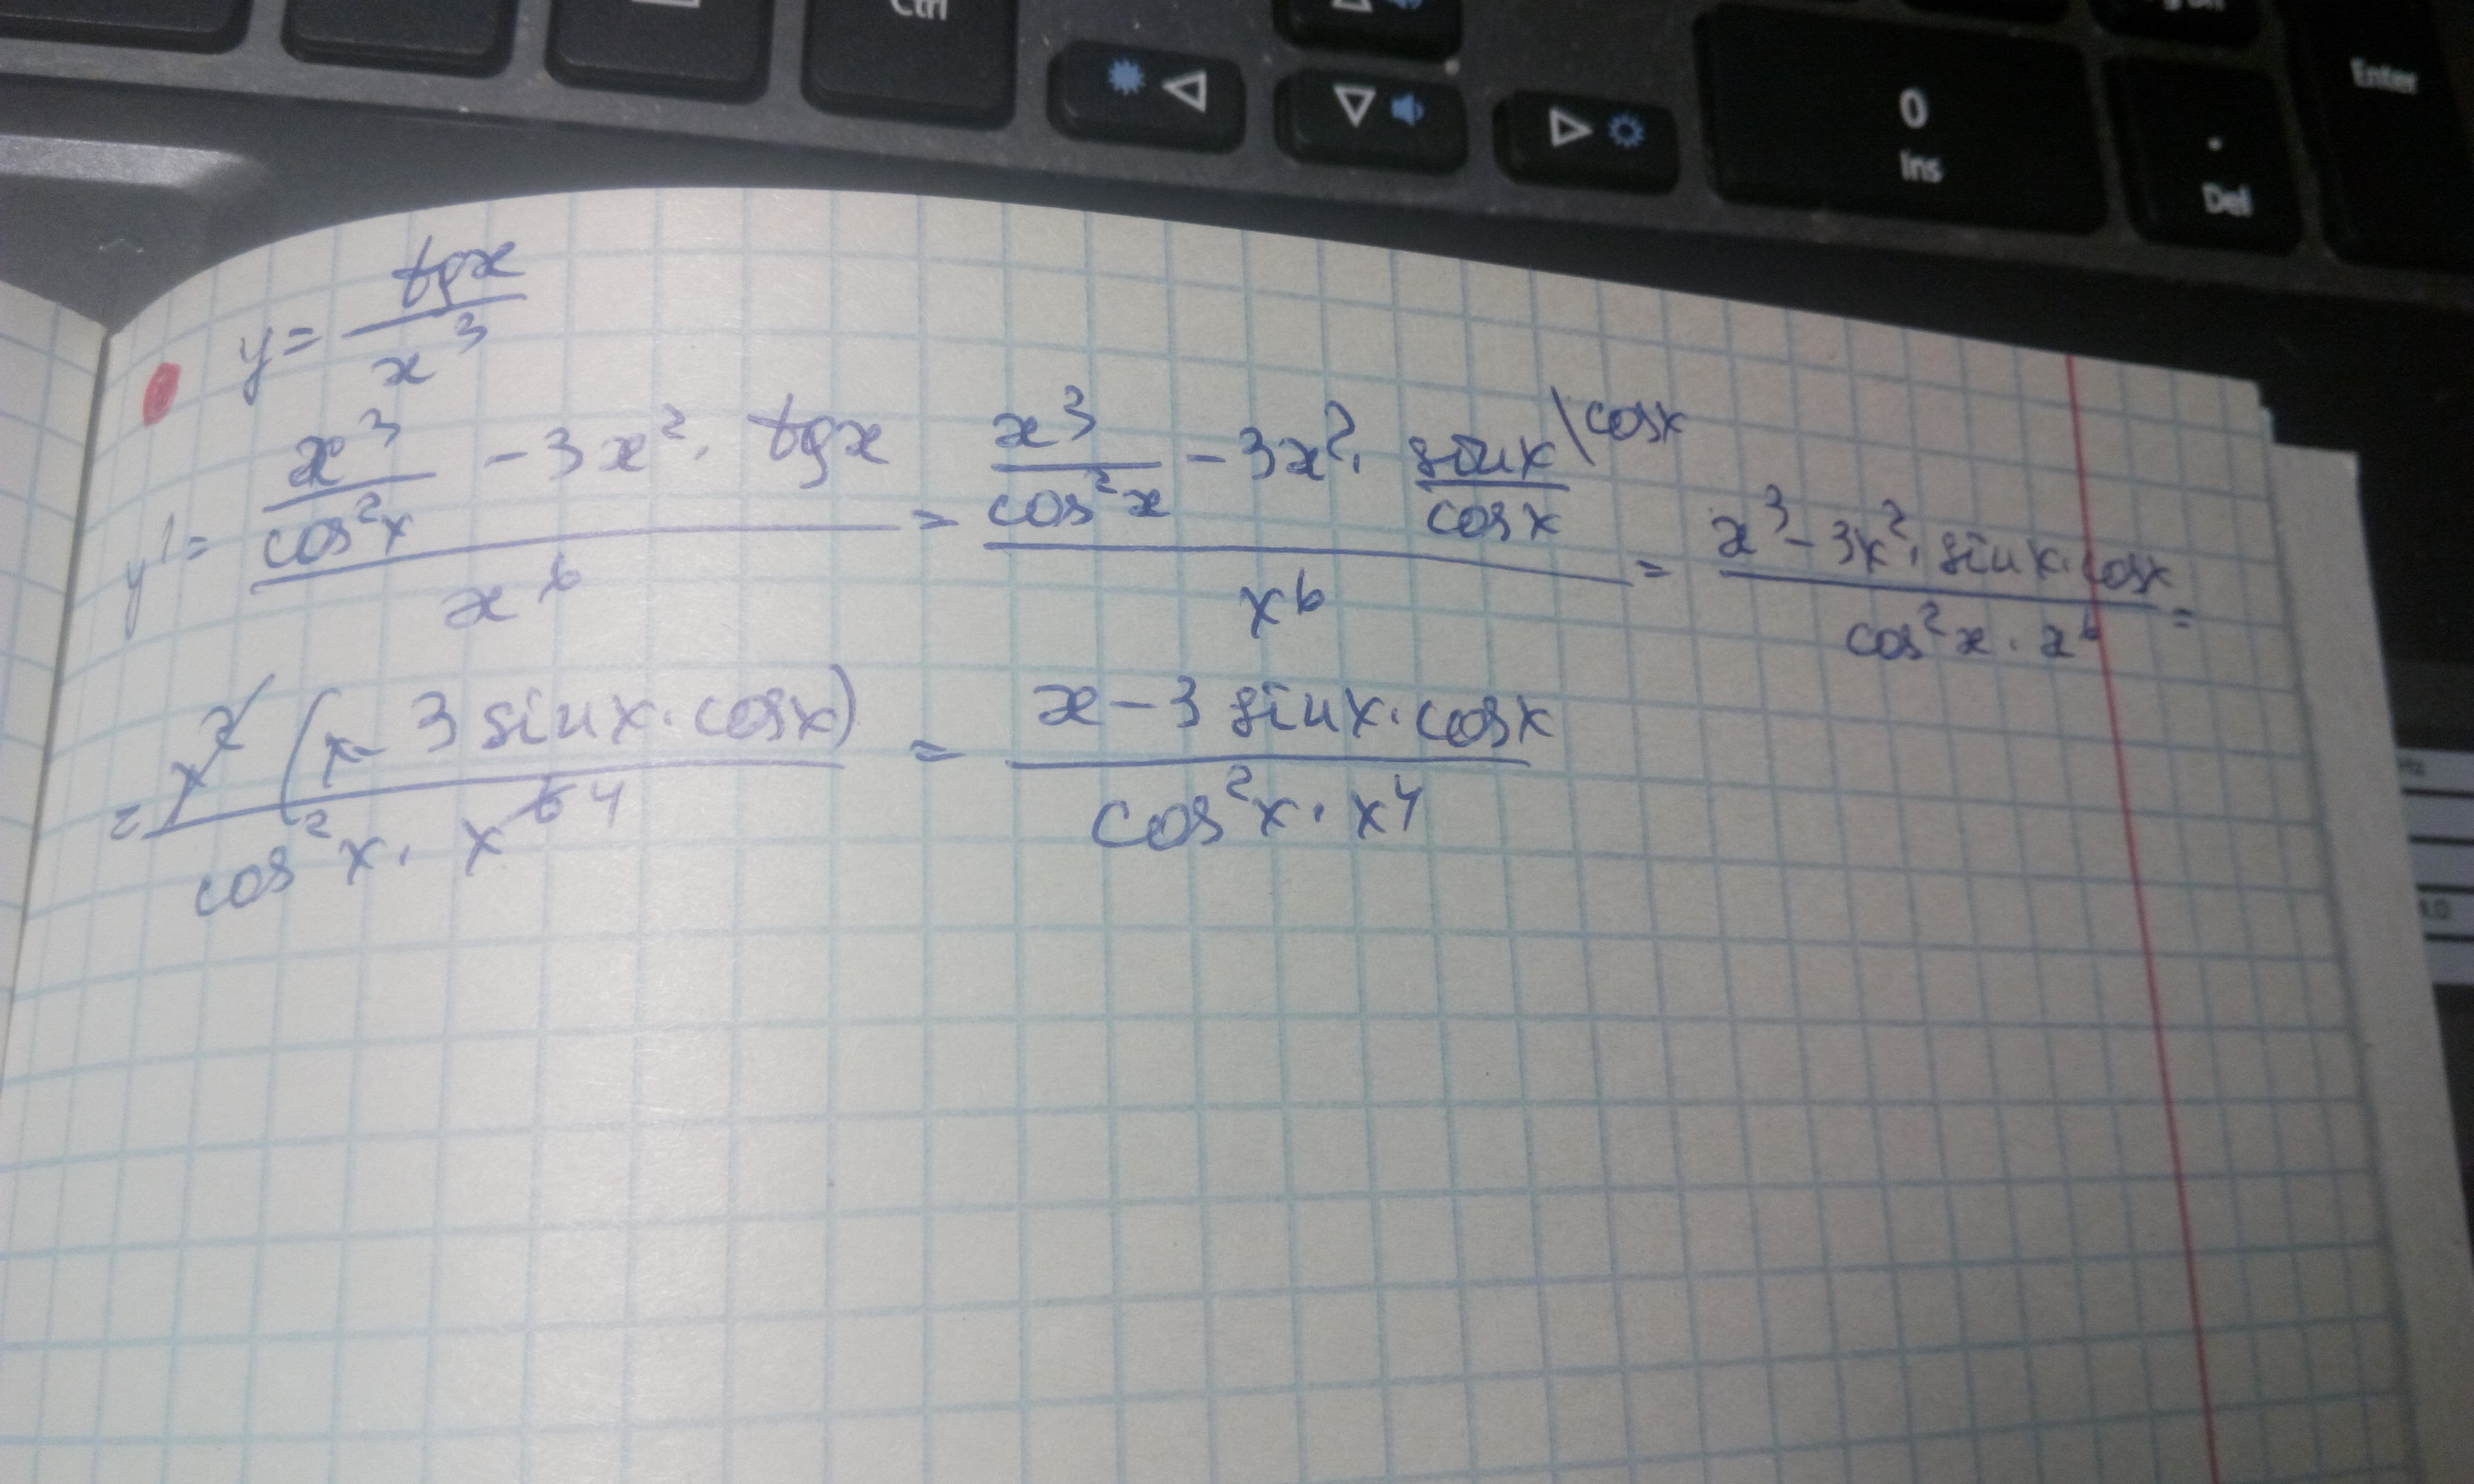 Ctrl
Enter
0
Ins
.
Del
y = tgx / x³
y' = (x³/cos²x - 3x² · tgx) / x⁶ = (x³/cos²x - 3x² · sinx/cosx \cosx) / x⁶ = (x³ - 3x² · sinx · cosx) / (cos²x · x⁶) =
= x² (x - 3 sinx · cosx) / (cos²x · x⁶ 4) = (x - 3 sinx · cosx) / (cos²x · x⁴)